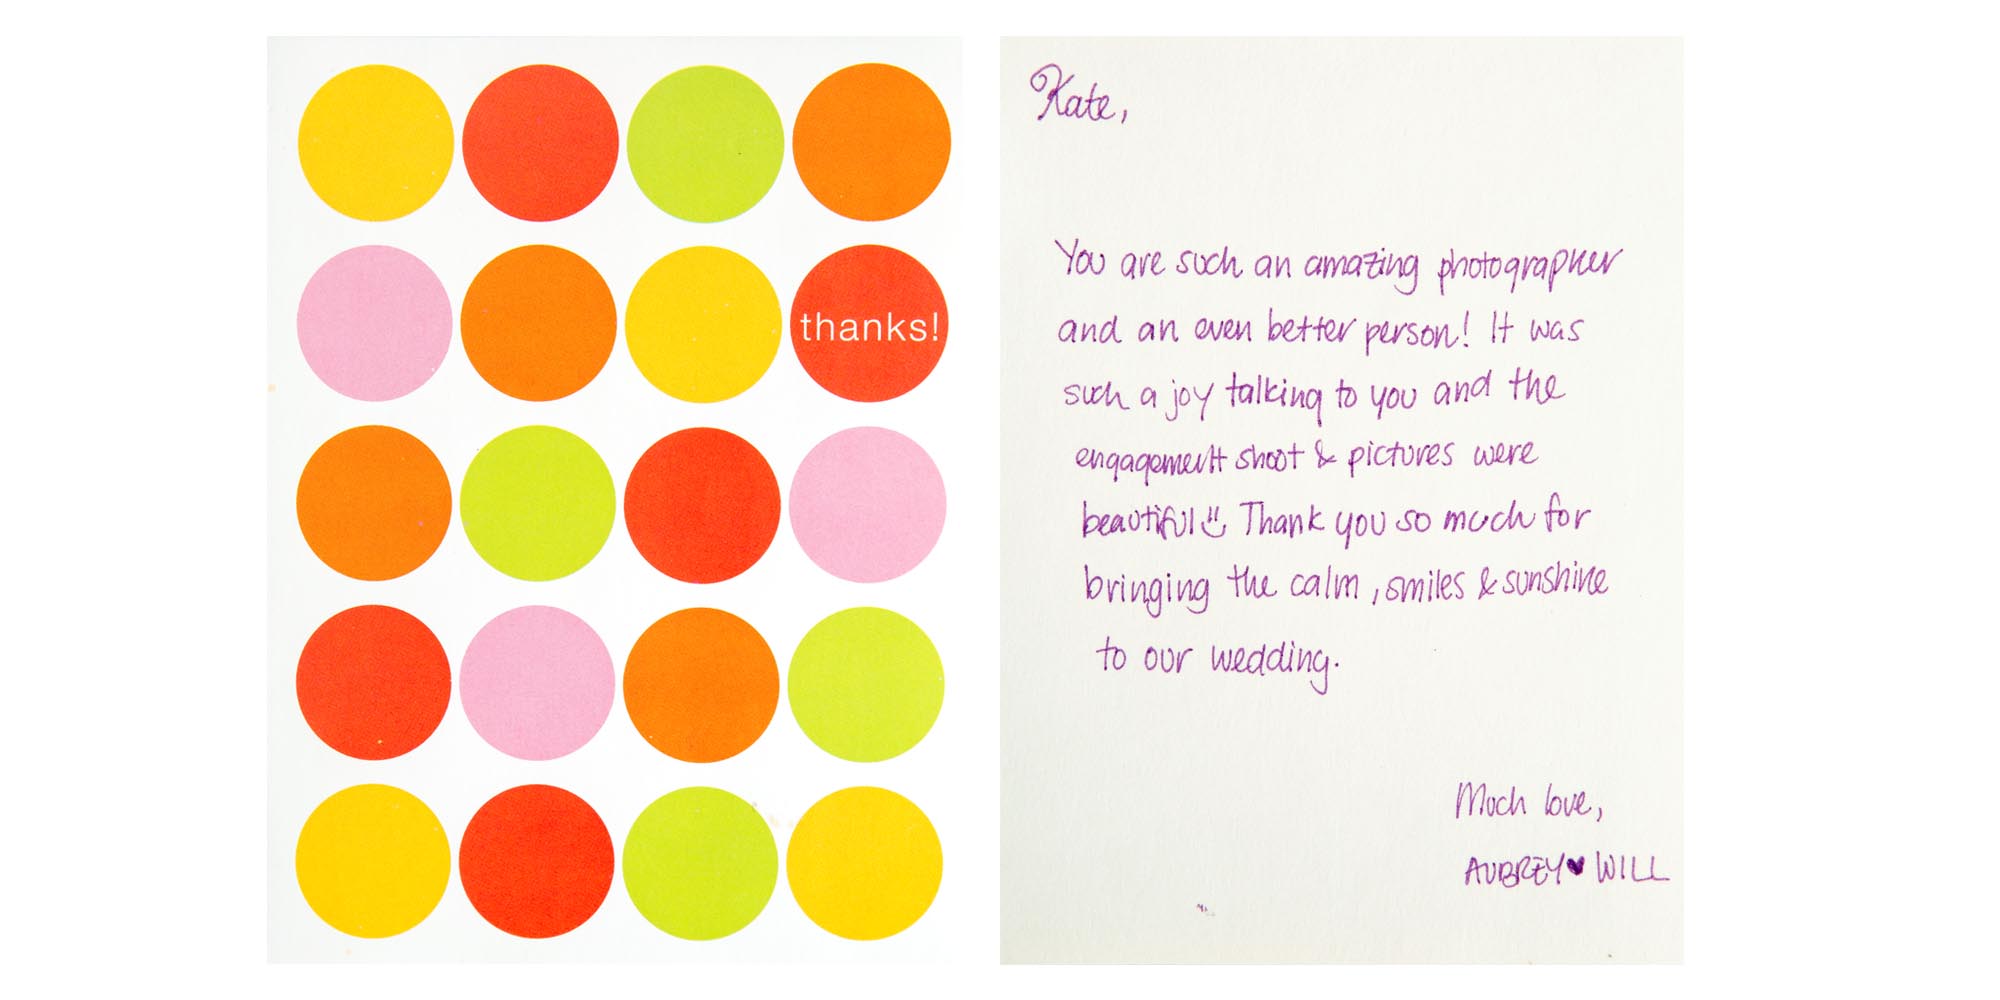 thanks!
Kate,
You are such an amazing photographer
and an even better person! It was
such a joy talking to you and the
engagement shoot & pictures were
beautiful Thank you so much for
bringing the calm, smiles & sunshine
to our wedding.
Much love,
AUBREY ♥ WILL